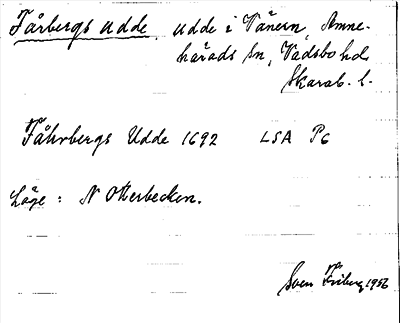 Fårbergs udde, udde i Vänern, Amne-
härads sn, Vadsbo hd.
Skarab. l.
Fåhrbergs Udde 1692 LSA P6
Läge: N Otterbäcken.
Sven Friberg 1956